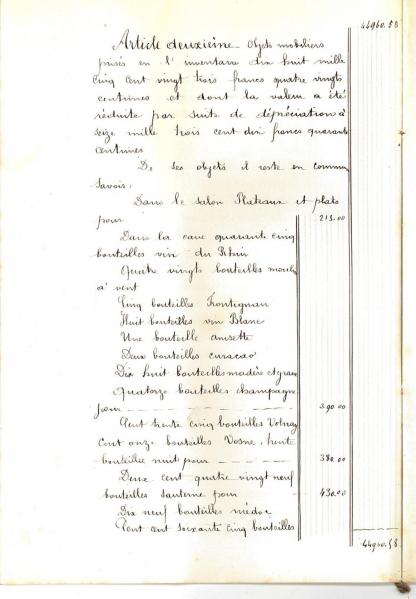 44960.58
Article deuxième. Objets mobiliers
prisés en l'inventaire dix huit mille
cinq cent vingt trois francs quatre vingts
centimes et dont la valeur a été
réduite par suite de dépréciation à
seize mille trois cent dix francs quarante
centimes
De ses objets il reste en commun
savoir:
Dans le salon Plateaux et plats
pour 213.00
Dans la cave quarante cinq
bouteilles vin du Rhin
Quatre vingts bouteilles moulin
à vent
Cinq bouteilles Frontignan
Huit bouteilles vin Blanc
Une bouteille anisette
Deux bouteilles curacao
Dix huit bouteilles madère et grave
Quatorze bouteilles champagne
pour 390.00
Cent trente cinq bouteilles Volnay
Cent onze bouteilles Vosne, trente
bouteilles nuit pour 380.00
Deux cent quatre vingt neuf
bouteilles sauterne pour 430.00
Dix neuf bouteilles médoc
cent soixante cinq bouteilles
44960.58